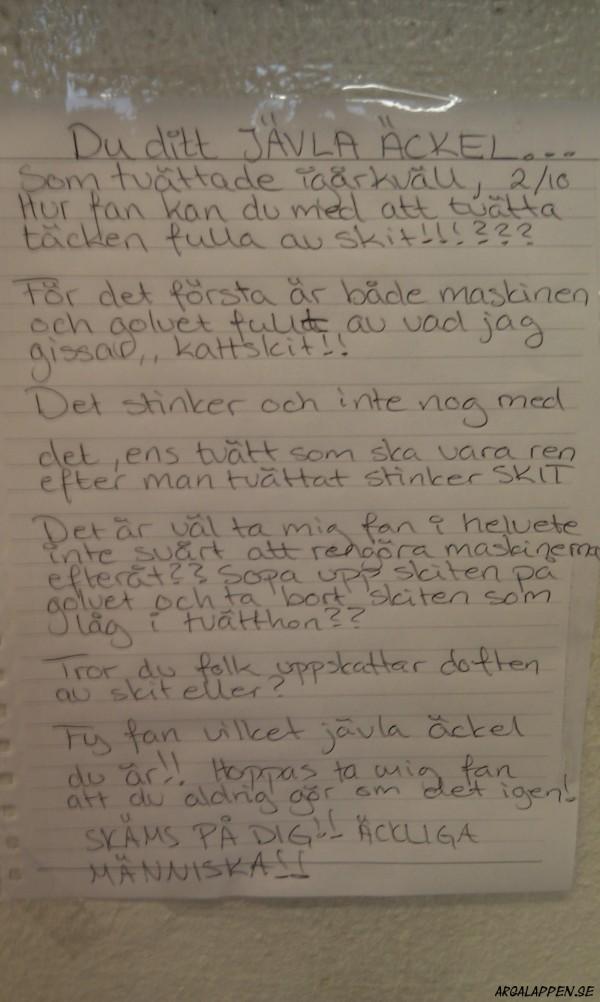 Du ditt JÄVLA ÄCKEL...
Som tvättade igårkväll, 2/10
Hur fan kan du med att tvätta
täcken fulla av skit!!!???
För det första är både maskinen
och golvet fullt av vad jag
gissar,, kattskit!!
Det stinker och inte nog med
det, ens tvätt som ska vara ren
efter man tvättat stinker SKIT
Det är väl ta mig fan i helvete
inte svårt att rengöra maskinerna
efteråt?? Sopa upp skiten på
golvet och ta bort skiten som
låg i tvätthon??
Tror du folk uppskattar doften
av skit eller?
Fy fan vilket jävla äckel
du är!! Hoppas ta mig fan
att du aldrig gör om det igen!
SKÄMS PÅ DIG!! ÄCKLIGA
MÄNNISKA!!
ARGALAPPEN.SE